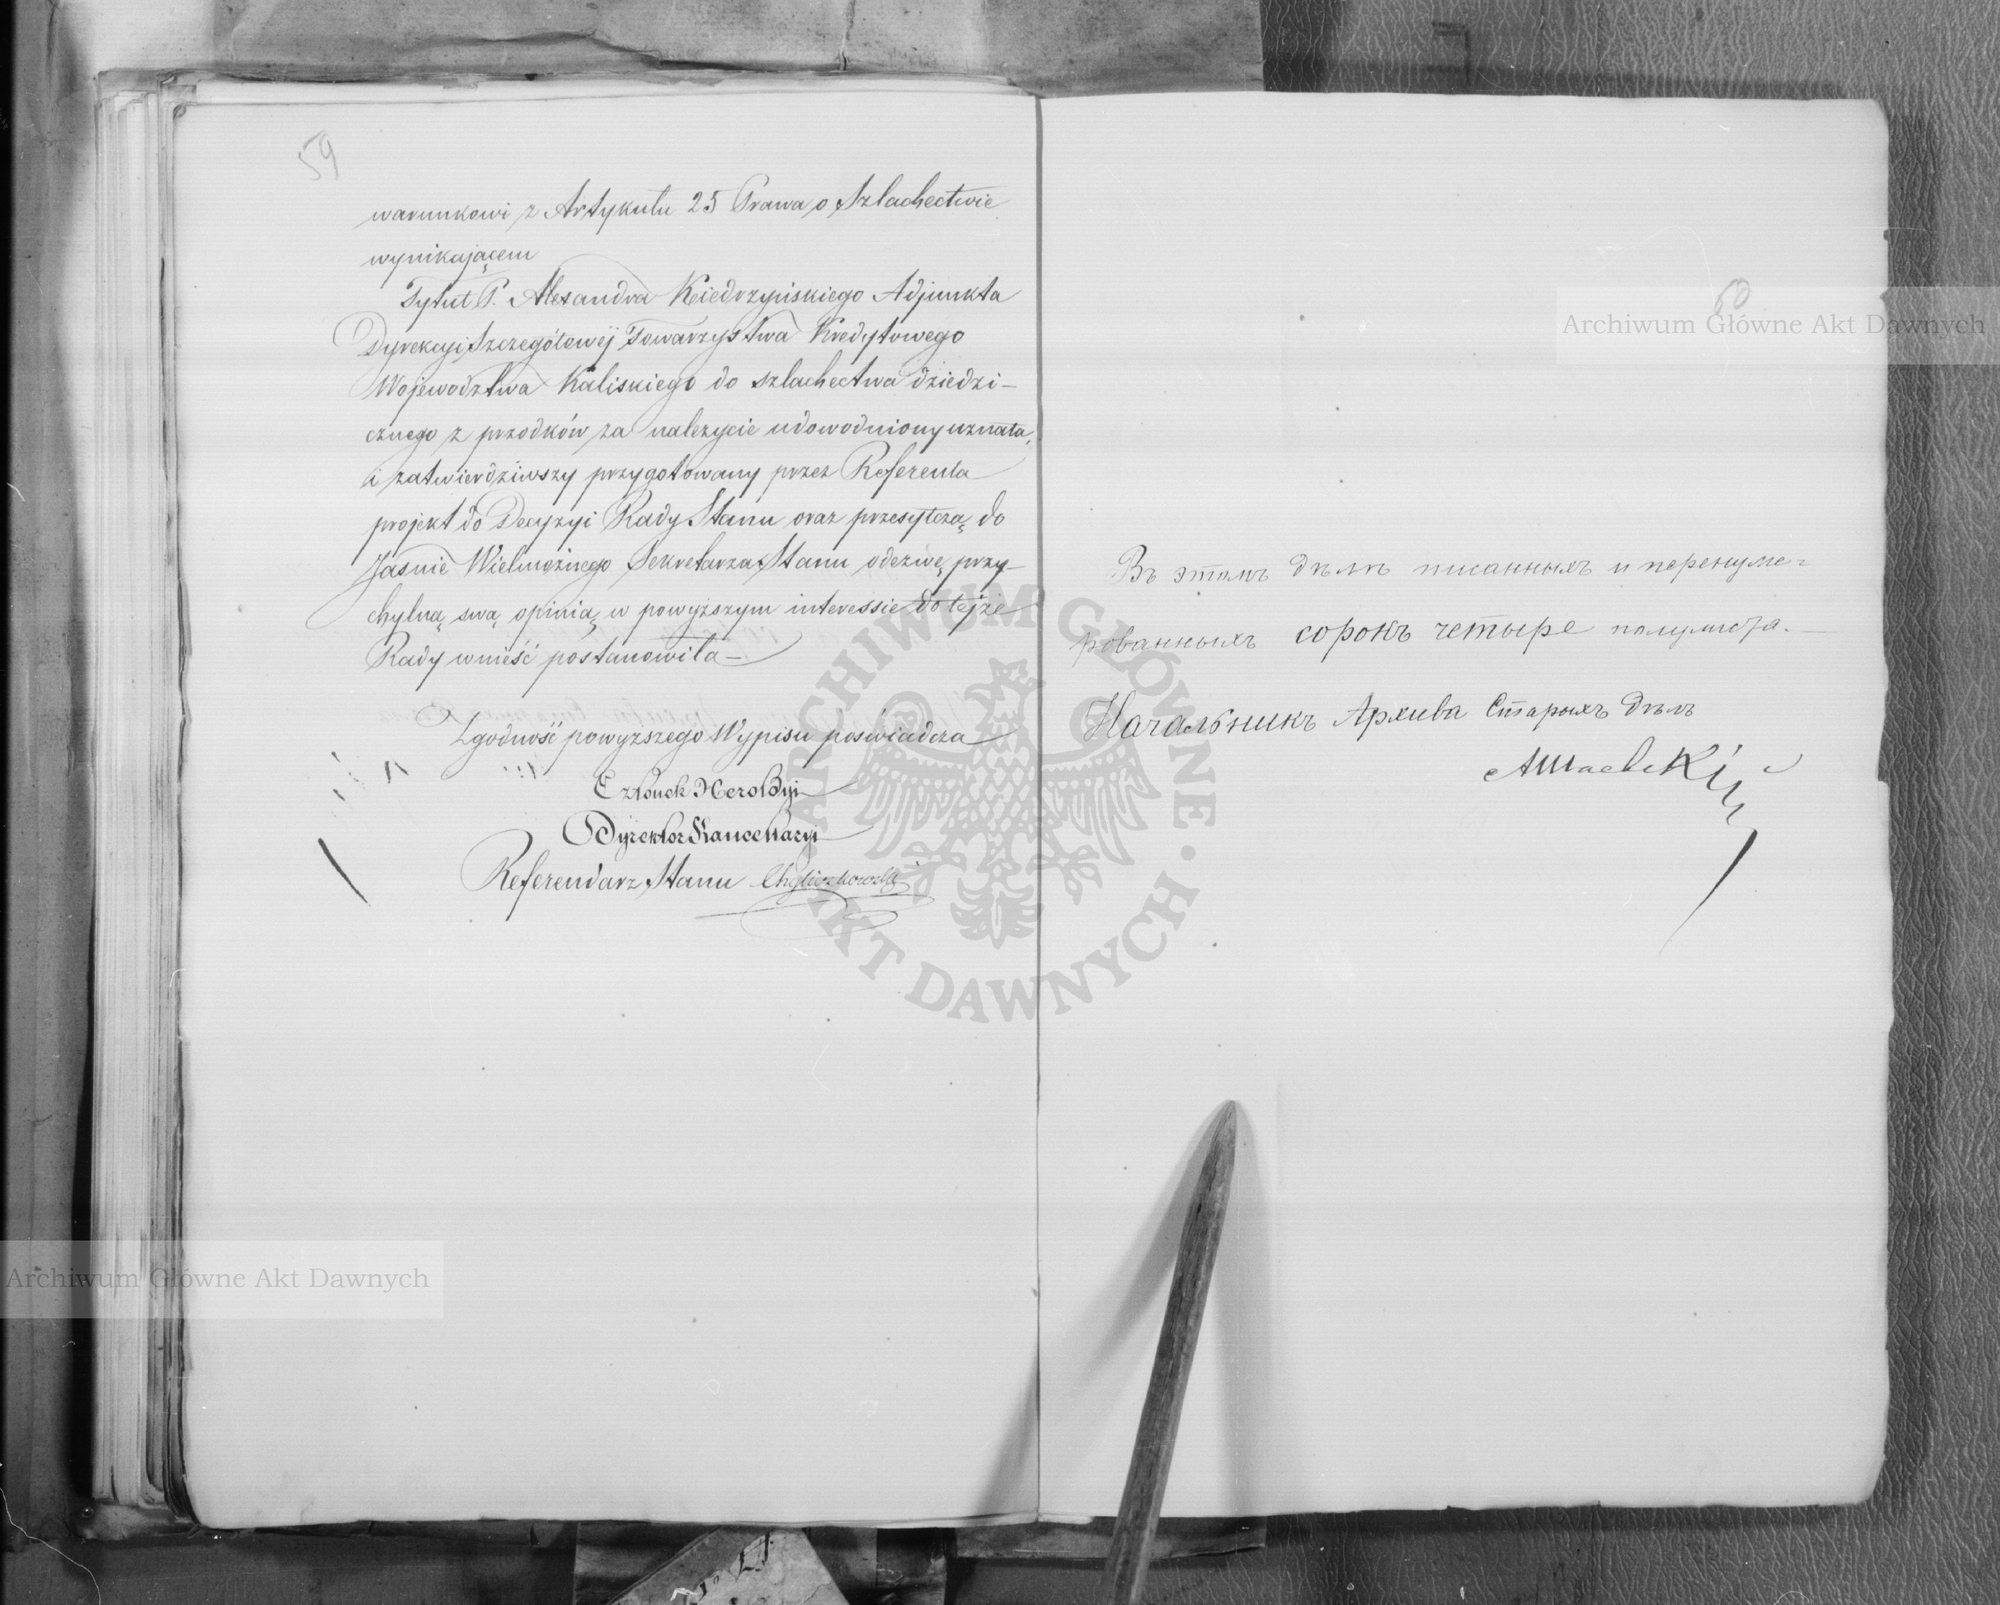 59
warunkowi z Artykułu 25 Prawa o Szlachectwie
wynikającem
Tytuł P. Alexandra Kiedrzyńskiego Adjunkta
Dyrekcyi Szczegółowej Towarzystwa Kredytowego
Województwa Kaliskiego do szlachectwa dziedzi-
cznego z przodków za należycie udowodniony uznała,
i zatwierdziwszy przygotowany przez Referenta
projekt do Decyzyi Rady Stanu oraz przesyłczą do
Jaśnie Wielmożnego Sekretarza Stanu odezwę, przy-
chylną swą opinią w powyższym interessie do tejże
Rady wnieść postanowiła –
Zgodność powyższego Wypisu poświadcza
Członek Heroldyi
Dyrektor Kancellaryi
Referendarz Stanu Chyliczkowski
60
Въ этомъ дѣлѣ писанныхъ и перенуме-
рованныхъ сорокъ четыре полулиста.
Начальникъ Архива Старыхъ Дѣлъ
Archiwum Główne Akt Dawnych
ARCHIWUM GŁÓWNE AKT DAWNYCH
Archiwum Główne Akt Dawnych